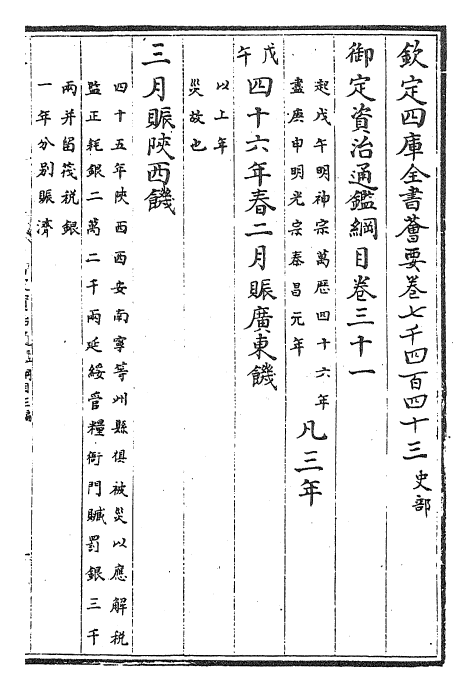 欽定四庫全書薈要卷七千四百四十三 史部
御定資治通鑑綱目卷三十一
起戊午明神宗萬歷四十六年
盡庚申明光宗泰昌元年
凡三年
戊午
四十六年春二月賑廣東饑
以上年
災故也
三月賑陝西饑
四十五年陝西西安南寧等州縣俱被災以應解稅
監正耗銀二萬二千兩延綏管糧衙門贓罰銀三千
兩并留茂稅銀
一年分別賑濟